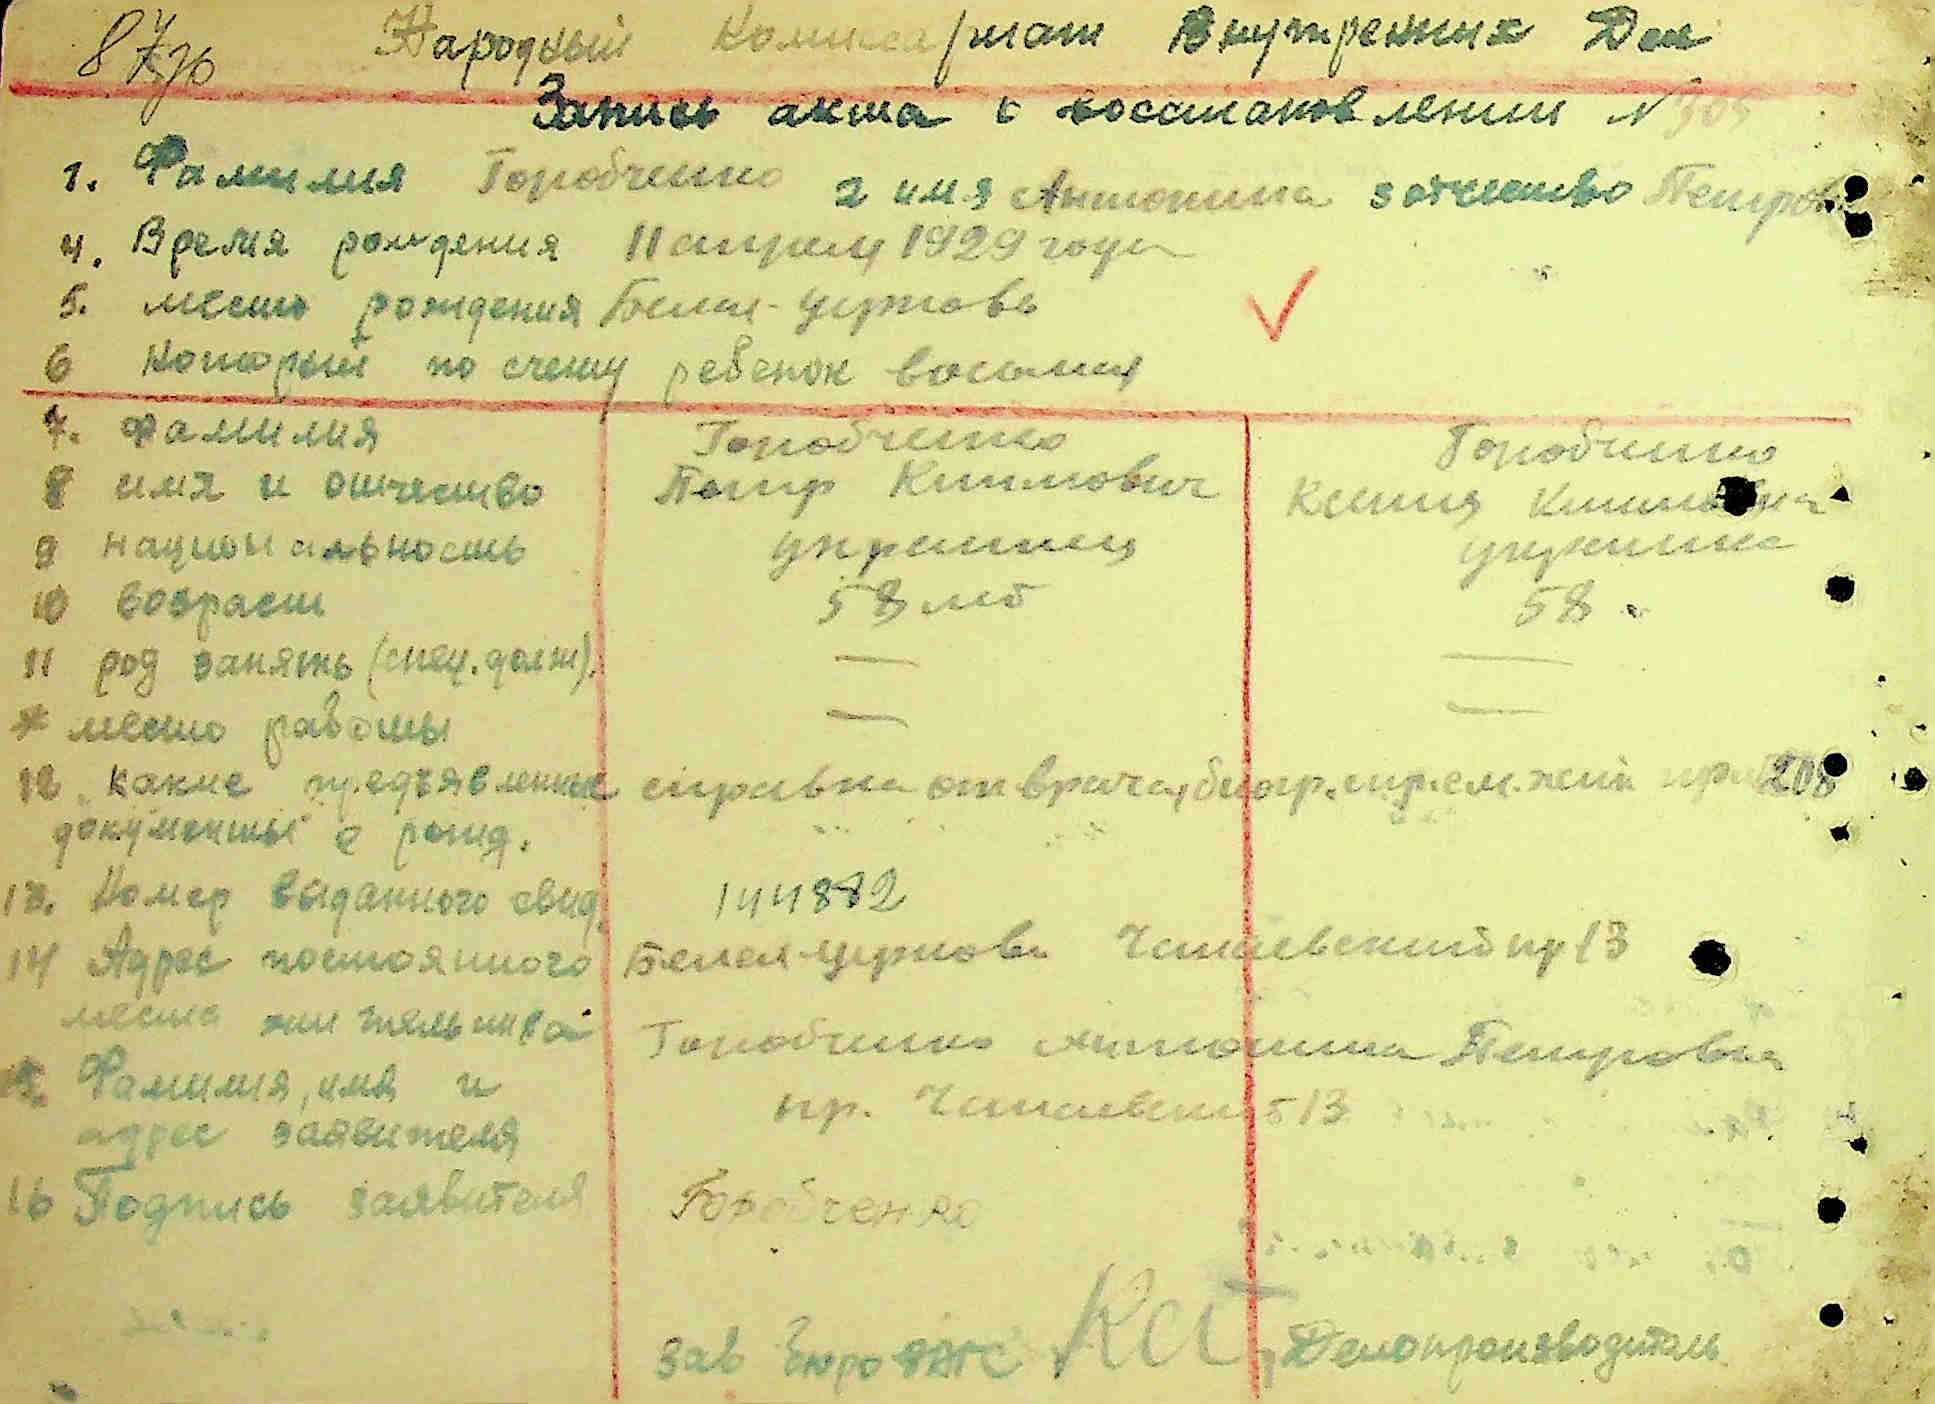 Народный Комисариат Внутренних Дел
Запись акта о восстановлении №
1. Фамилия Горобченко 2 имя Антонина 3 отчество Петров
4. Время рождения 11 апреля 1929 года
5. место рождения Белая-церковь
6 который по счету ребенок восьмой
7. Фамилия Горобченко Горобченко
8 имя и отчество Петр Климович Ксения Климовна
9 национальность украинец украинка
10 возраст 58 лет 58 "
11 род занять (спец. долж). — —
* место работы — —
12 какие предъявленные справка от врача, 208
документы о рожд.
13. Номер выданного свид. 144882
14 Адрес постоянного Белая церковь Чапаевский пр 13
места жительства
Горобченко Антонина Петровна
15. Фамилия, имя и
пр. Чапаевский 13
адрес заявителя
16 Подпись заявителя Горобченко
Зав Бюро ЗАГС Делопроизводитель